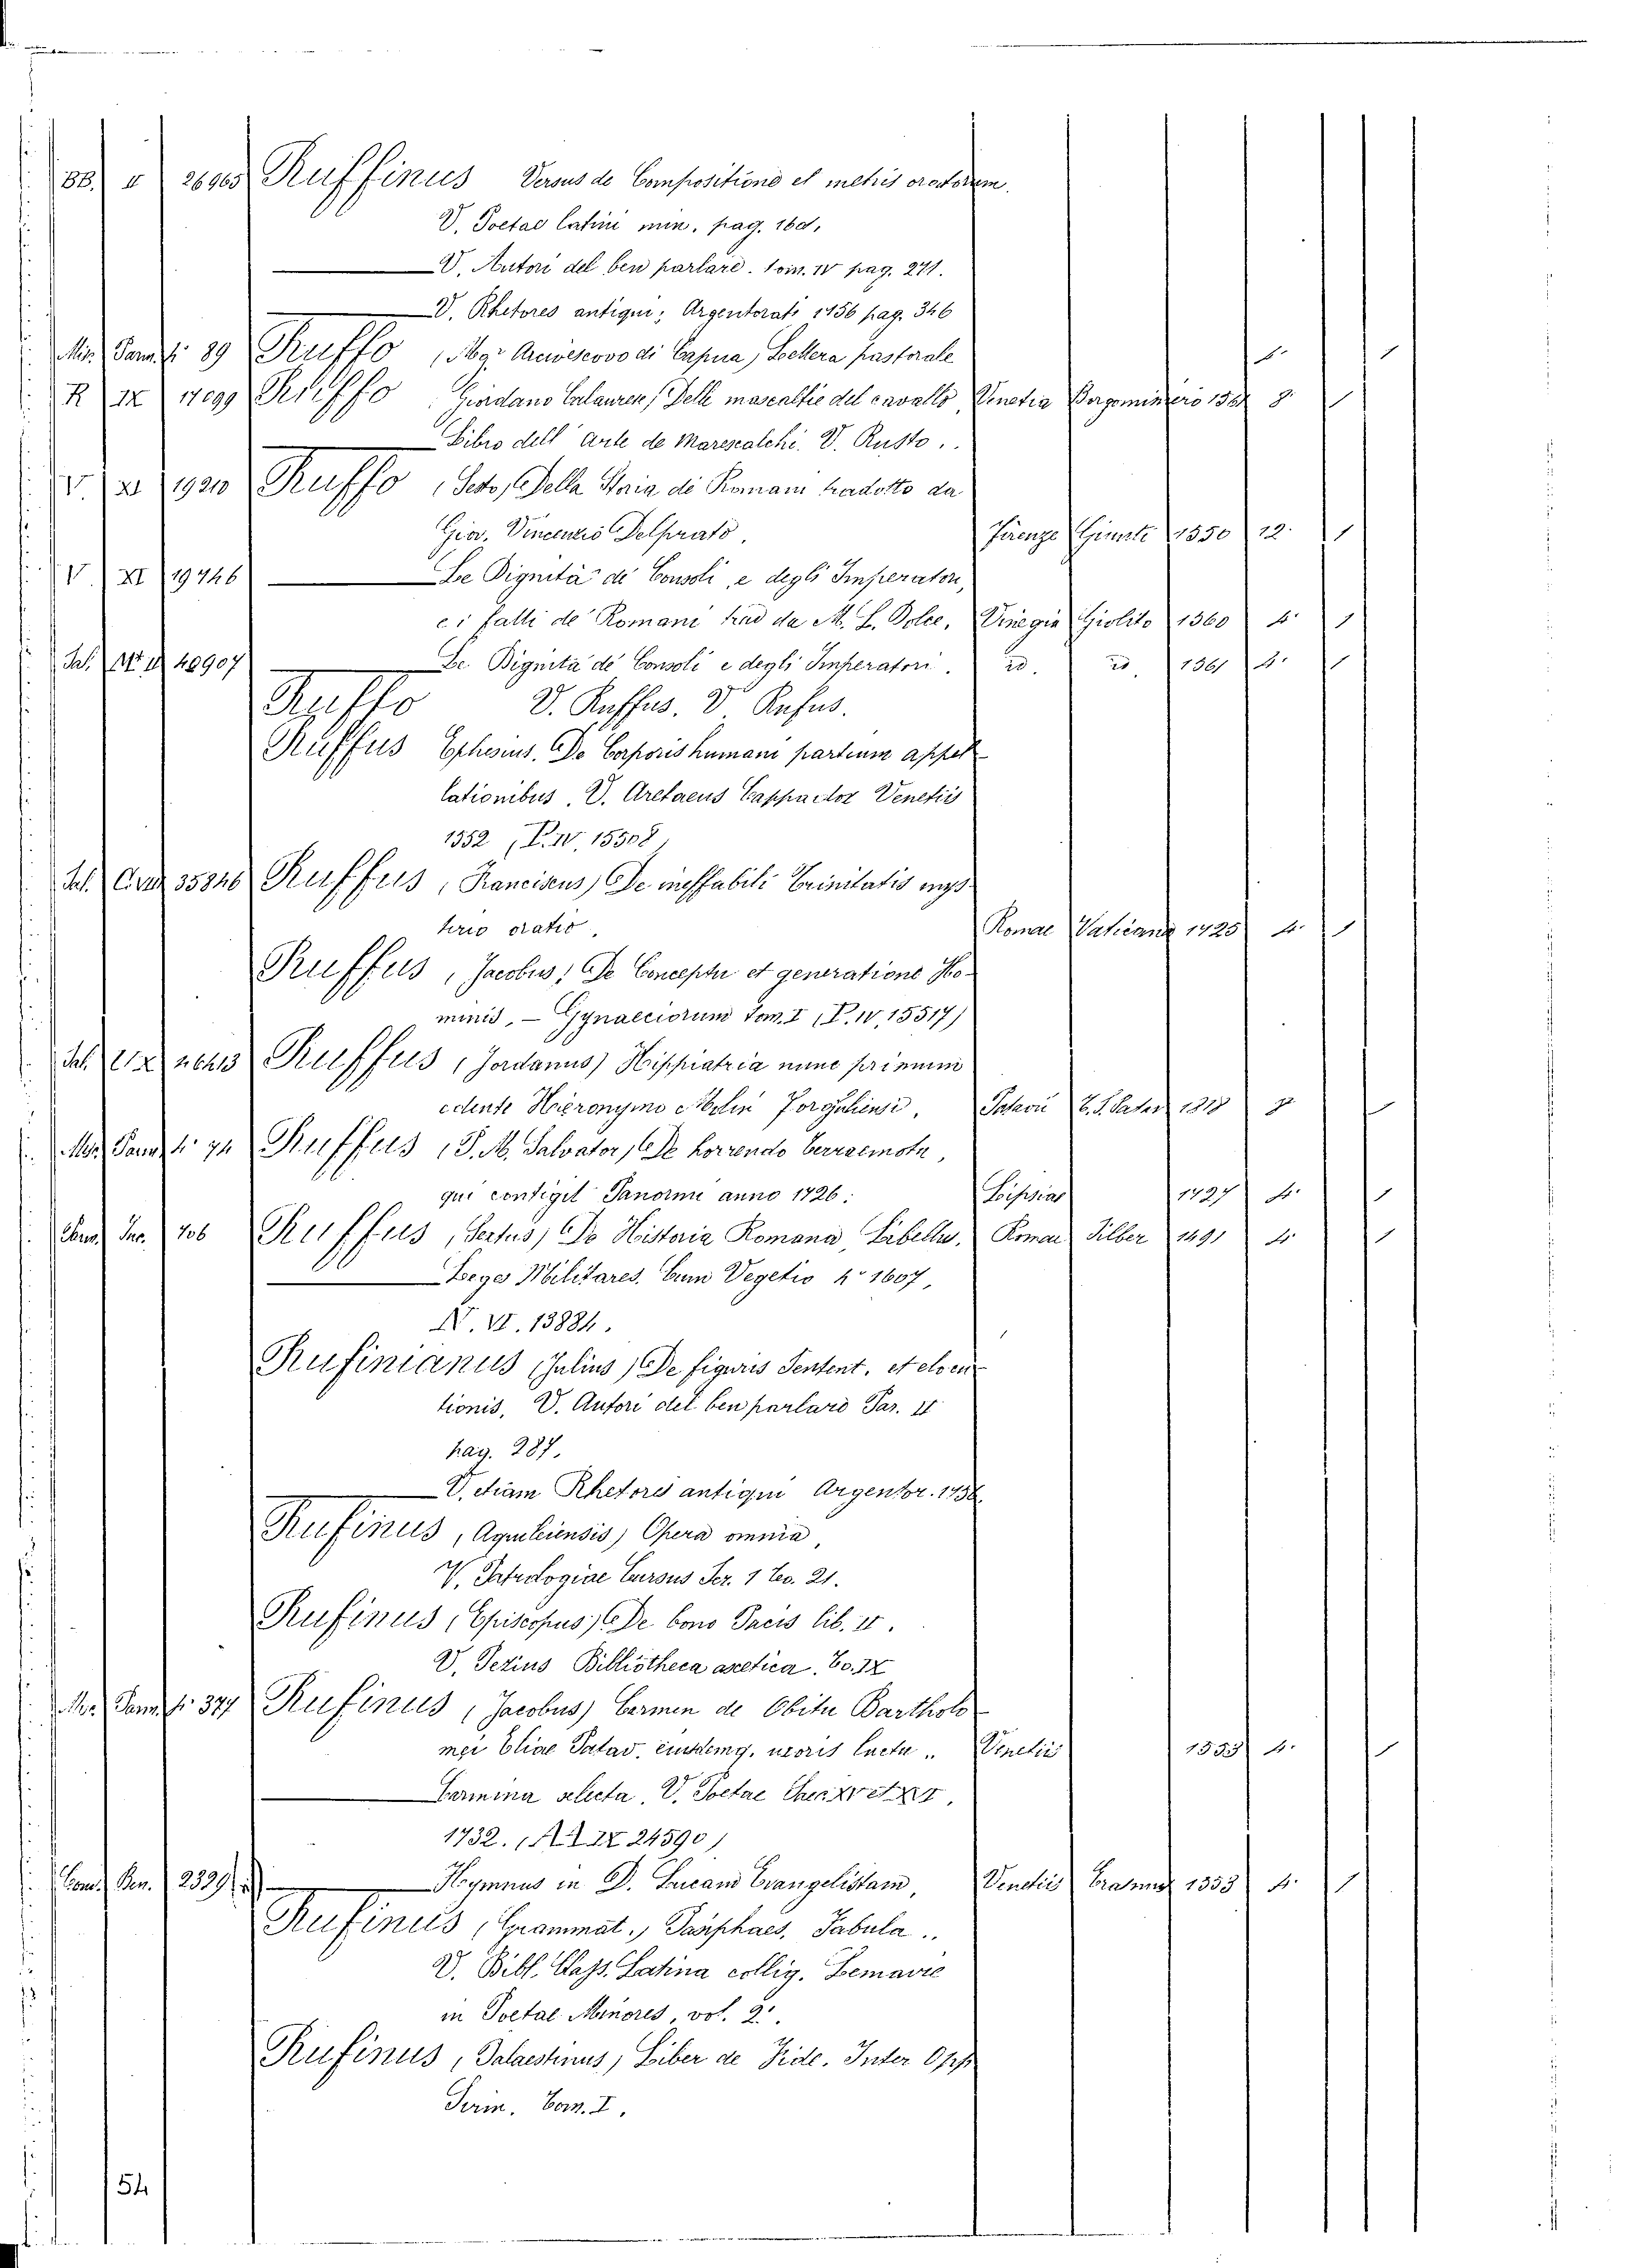 BB. II 26965 Ruffinus Versus de Compositione et metris oratorum.
V. Poetae latini min. pag. 160.
V. Autori del ben parlare. Tom. IV pag. 271.
V. Rhetores antiqui; Argentorati 1756 pag. 346
Misc. Pann. fi 89 Ruffo, Mgr Arcivescovo di Capua, Lettera pastorale 4. 1
R IX 17099 Ruffo Giordano Calavren, Delle mascalzie del cavallo Venetia 8. 1
Libro dell' arte de Marescalchi. V. Rusto.
V. XI 1920 Ruffo, Sesto, Della Storia di Romani tradotto da
Gio. Vincenzio Delprato. Firenze Giunti 1550 12. 1
V. XI 19746 Le Dignità di Consoli, e degli Imperatori,
e i fatti de Romani trad da M. L. Dolce, Vinegia Giolito 1560 4. 1
48907 Le Dignità de Consoli e degli Imperatori. id. id. 1561 4. 1
Ruffo V. Ruffus. V. Rufus.
Ruffus Ephesius. De Corporis humani partium appel
lationibus. V. Aretaeus Cappadox Venetiis
1552, P. IV. 15508,
35846 Ruffus, Franciscus, De ineffabili Trinitatis mys
terio oratio. Romae Vaticana 1725 4. 1
Ruffus, Jacobus, De Conceptu et generatione Ho-
minis. — Gynaeciorum Tom. I, P. IV, 15517)
Ruffus, Jordanus) Hippiatria nunc primum
edente Hieronymo Molin Forojuliensi. Patavii 1818 1
Misc. Pann. fi 74 Ruffus, P. M. Salvator, De horrendo terraemotu,
qui contigit Panormi anno 1726. Lipsiae 1727 4. 1
Inc. 706 Ruffus, Sextus, De Historia Romana, Libellus. Romae Silber 1491 4. 1
Leges Militares. Cum Vegetio 4° 1607,
N. VI. 13884.
Rufinianus, Julius, De figuris Sentent. et elocu-
tionis, V. Autori del ben parlare Par. II
pag. 287.
V. etiam Rhetores antiqui Argentor. 1756.
Rufinus, Aquileiensis) Opera omnia,
V. Patrologiae Cursus Ser. 1 To. 21.
Rufinus, Episcopus, De bono Pacis lib. II.
V. Pezius Bibliotheca ascetica. To. IX
Misc. Pann. fi 377 Rufinus, Jacobus) Carmen de Obitu Bartholo
mei Eliae Patav. eiusdemq. uxoris luctu.. Venetiis 1553 4. 1
Carmina selecta, V. Poetae
1732. 24590)
Ben. 2399 Hymnus in D. Lucam Evangelistam, Venetiis 1553 4. 1
Rufinus, Grammat., Pasiphaes, Fabula..
V. Bibl. Class. Latina collig. Lemaire
in Poetae Minores, vol. 2°.
Rufinus, Palaestinus, Liber de Fide. Inter Opp
Sirm. Tom. I.
54